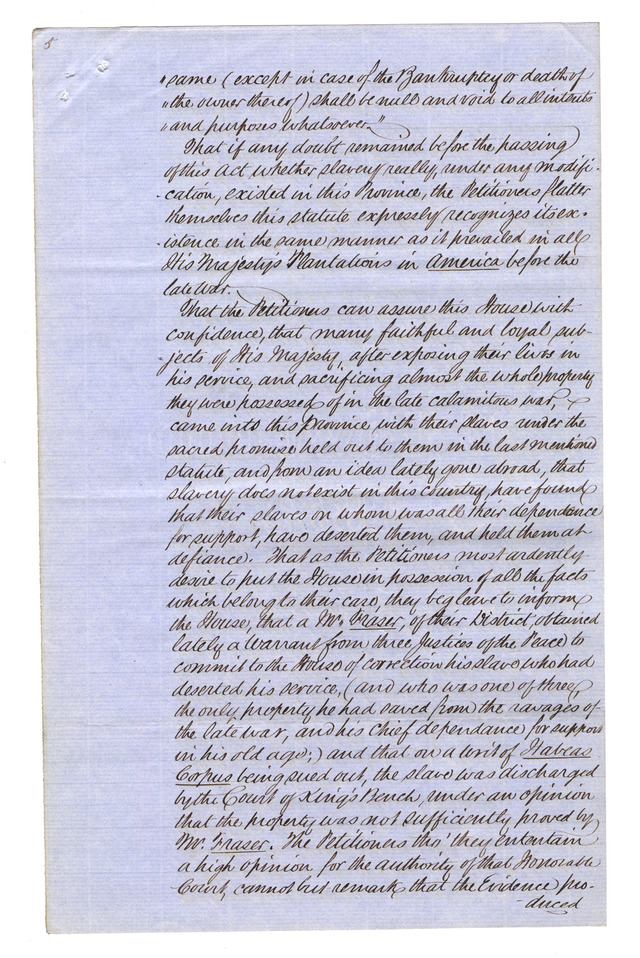 5
"same (except in case of the Bankruptcy or death of
"the owner thereof) shall be null and void to all intents
"and purposes whatsoever."
That if any doubt remained before the passing
of this act, whether slavery really, under any modifi-
-cation, existed in this Province, the Petitioners flatter
themselves this statute expressly recognizes its ex-
-istence in the same manner as it prevailed in all
His Majesty's Plantations in America before the
late war.
That the Petitioners can assure this House with
confidence, that many faithful and loyal sub-
-jects of His Majesty, after exposing their lives in
his service, and sacrificing almost the whole property
they were possessed of in the late calamitous war,
came into this province with their slaves under the
sacred promise held out to them in the last mentioned
statute, and from an idea lately gone abroad, that
slavery does not exist in this country, have found
that their slaves on whom was all their dependence
for support, have deserted them, and held them at
defiance. That as the Petitioners most ardently
desire to put the House in possession of all the facts
which belong to their case, they beg leave to inform
the House, that a Mr. Fraser, of their District, obtained
lately a warrant from three Justices of the Peace to
commit to the House of correction his slave who had
deserted his service, (and who was one of three,
the only property he had saved from the ravages of
the late war, and his chief dependance for support
in his old age;) and that on a writ of Habeas
Corpus being sued out, the slave was discharged
by the Court of King's Bench, under an opinion
that the property was not sufficiently proved by
Mr. Fraser. The Petitioners tho' they entertain
a high opinion for the authority of that Honorable
Court, cannot but remark that the Evidence pro-
-duced